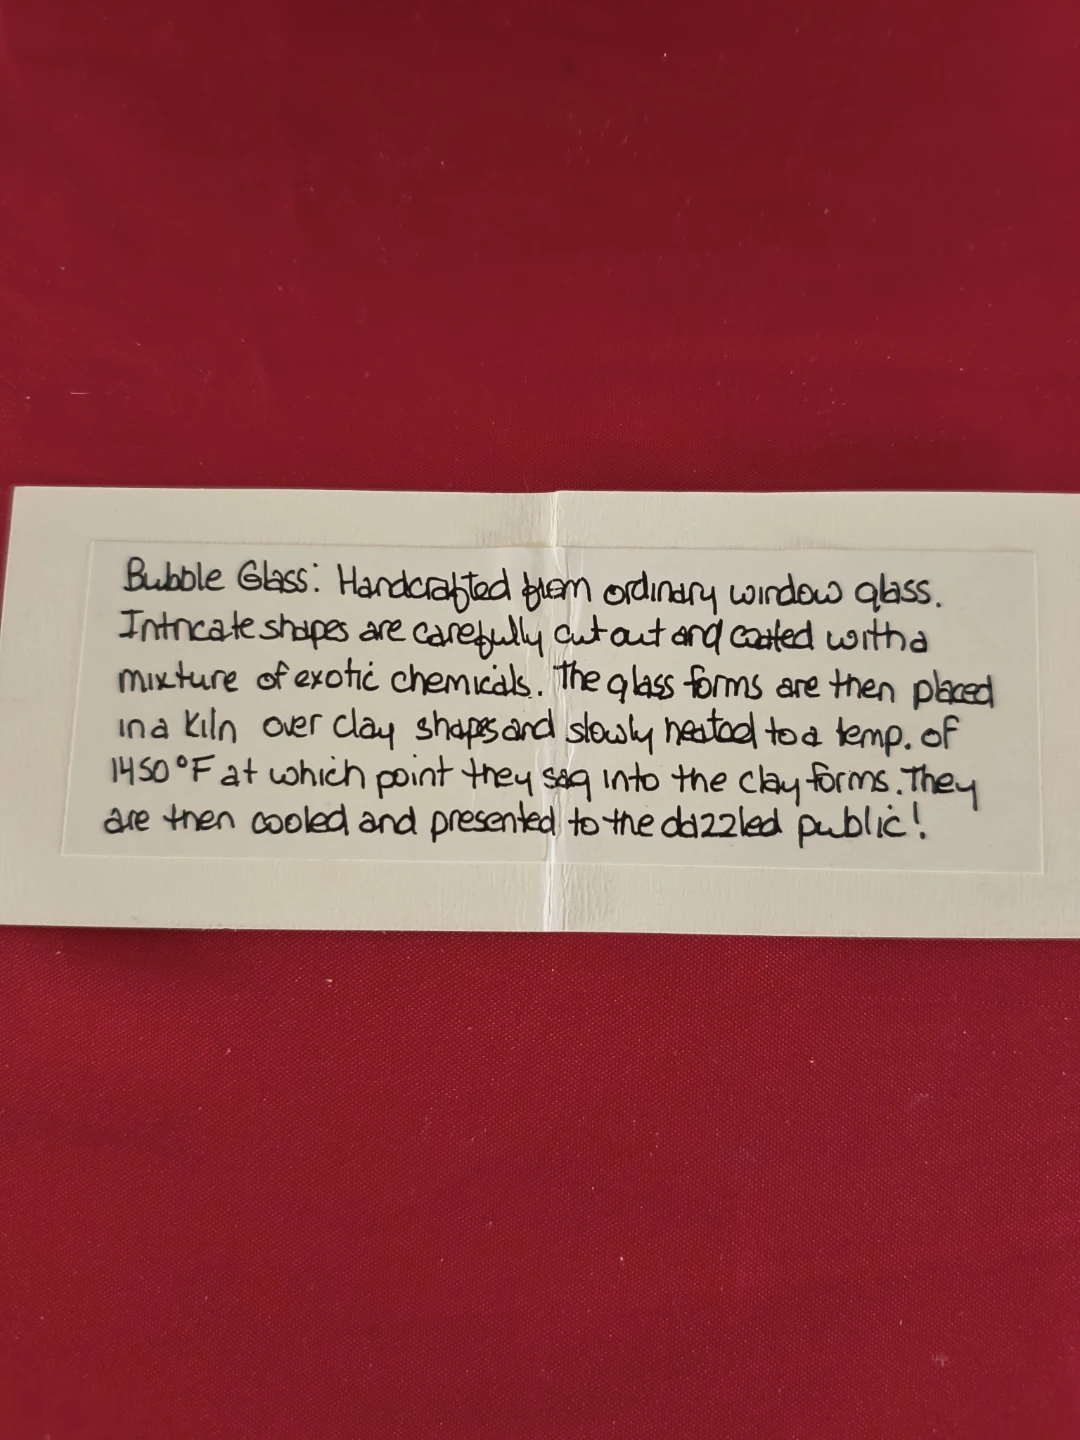 Bubble Glass: Handcrafted from ordinary window glass.
Intricate shapes are carefully cut out and coated with a
mixture of exotic chemicals. The glass forms are then placed
in a kiln over clay shapes and slowly heated to a temp. of
1450°F at which point they sag into the clay forms. They
are then cooled and presented to the dazzled public!